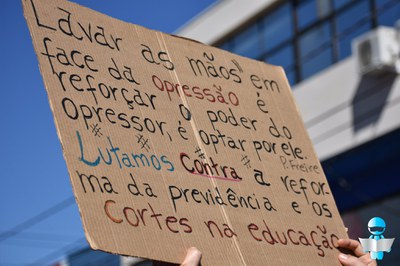 Lavar as mãos em
face da opressão é
reforçar o poder do
opressor, é optar por ele.
P. Freire
# # # #
Lutamos contra a refor
ma da previdência e os
cortes na educação